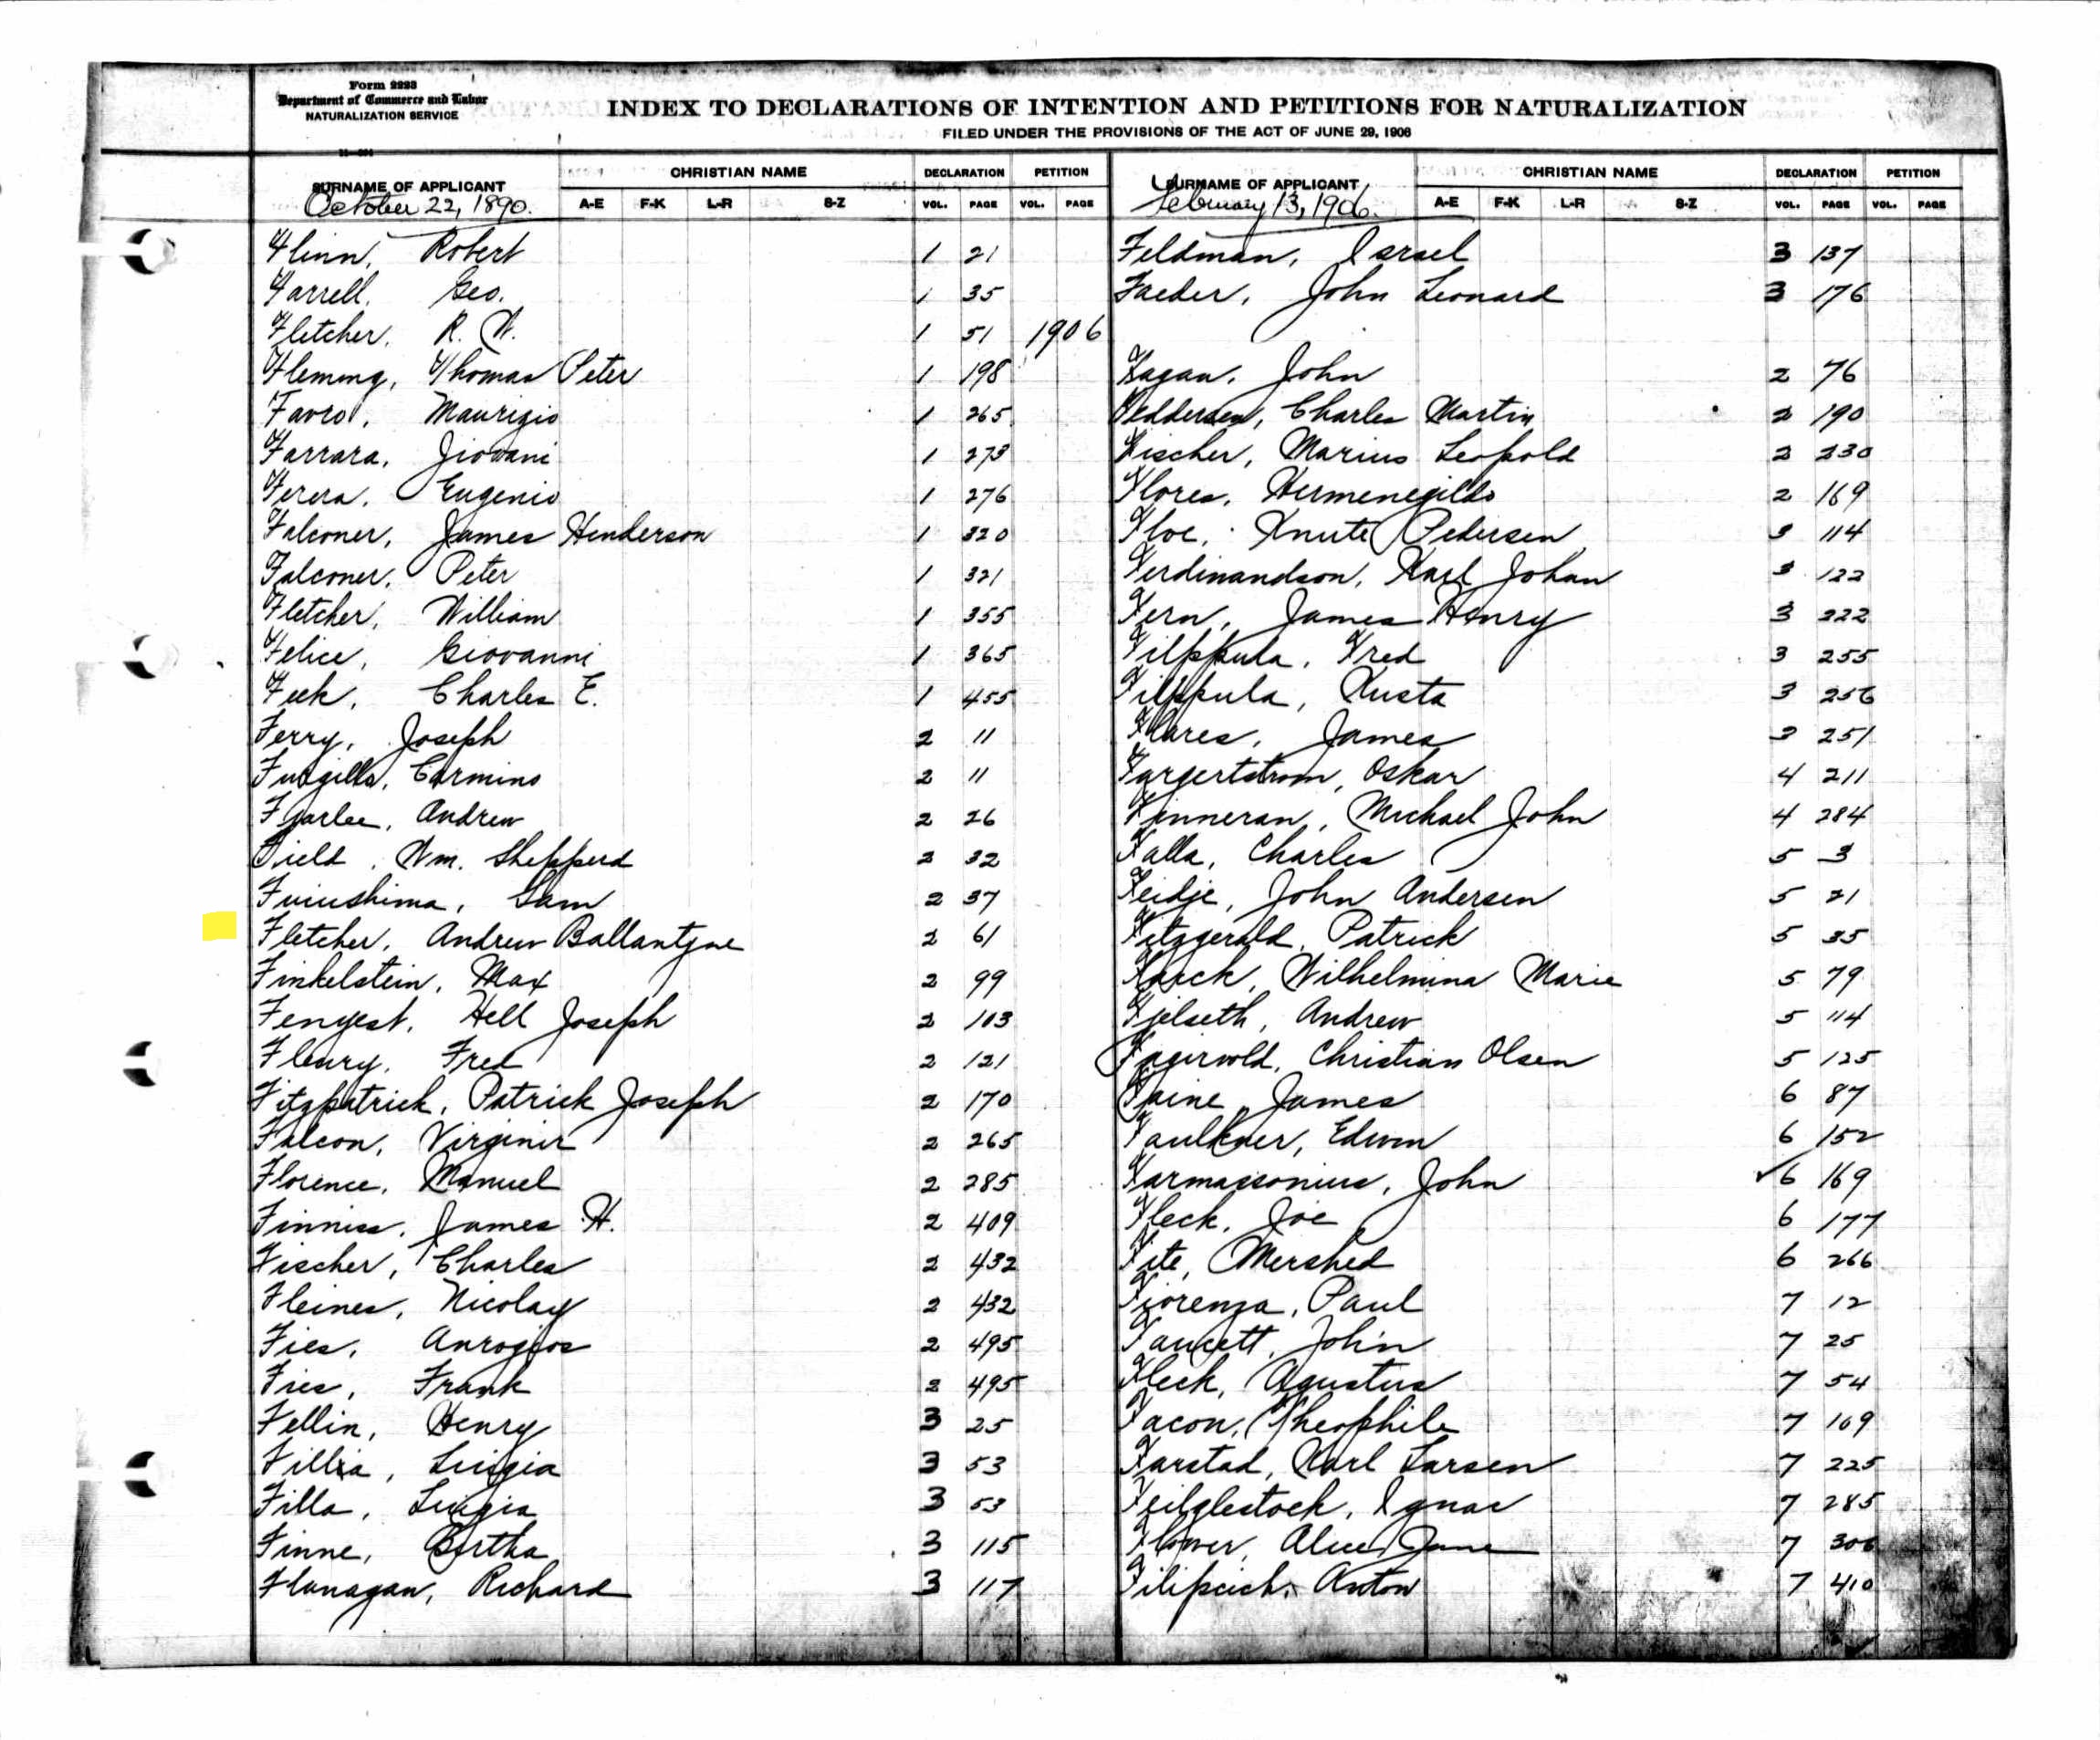 Form 2223
Department of Commerce and Labor
NATURALIZATION SERVICE
INDEX TO DECLARATIONS OF INTENTION AND PETITIONS FOR NATURALIZATION
FILED UNDER THE PROVISIONS OF THE ACT OF JUNE 29, 1906
SURNAME OF APPLICANT CHRISTIAN NAME DECLARATION PETITION
October 22, 1890. A-E F-K L-R S-Z VOL. PAGE VOL. PAGE
Flinn, Robert 1 21
Farrell, Geo. 1 35
Fletcher, R. W. 1 51 1906
Fleming, Thomas Peter 1 198
Favro, Maurizio 1 265
Farrara, Jiovani 1 273
Ferera, Eugenio 1 276
Falconer, James Henderson 1 320
Falconer, Peter 1 321
Fletcher, William 1 355
Felice, Giovanni 1 365
Feek, Charles E. 1 455
Ferry, Joseph 2 11
Carmino 2 11
Fjarlee, Andrew 2 26
Field, Wm. Shepperd 2 32
Furushima, Sam 2 37
Fletcher, Andrew Ballantyne 2 61
Finkelstein, Max 2 99
Fenyest, Hell Joseph 2 103
Fleury, Fred 2 121
Fitzpatrick, Patrick Joseph 2 170
Falcon, Virginir 2 265
Florence, Manuel 2 285
Finniss, James H. 2 409
Fischer, Charles 2 432
Fleines, Nicolay 2 432
Fies, 2 495
Fies, Frank 2 495
Fellin, Henry 3 25
Fillia, Luigia 3 53
Filla, Luigia 3 53
Finne, Bertha 3 115
Flanagan, Richard 3 117
SURNAME OF APPLICANT CHRISTIAN NAME DECLARATION PETITION
February 13, 1906. A-E F-K L-R S-Z VOL. PAGE VOL. PAGE
Feldman, Israel 3 137
Faeder, John Leonard 3 176
Fagan, John 2 76
Feddersen, Charles Martin 2 190
Fischer, Marius Leopold 2 230
Flores, Hermenegildo 2 169
Floe, Knute Pedersen 3 114
Ferdinandson, Karl Johan 3 122
Fern, James Henry 3 222
Filppula, Fred 3 255
Filppula, Kusta 3 256
Flares, James 3 251
Fargertstrom, Oskar 4 211
Finneran, Michael John 4 284
Falla, Charles 5 3
Feidje, John Andersen 5 21
Fitzgerald, Patrick 5 35
Wilhelmina Marie 5 79
Fjelseth, Andrew 5 114
Fagerwold, Christian Olsen 5 125
Faine, James 6 87
Faulkner, Edwin 6 152
Farmassonius, John ✓6 169
Fleck, Joe 6 177
Fite, Mershed 6 266
Fiorenza, Paul 7 12
Faucett, John 7 25
Fleck, Agustus 7 54
Facon, Theophile 7 169
Farstad, Karl Larsen 7 225
Feilglestock, Ignac 7 285
Flower, Alice Jane 7 306
Filipcich, Anton 7 410